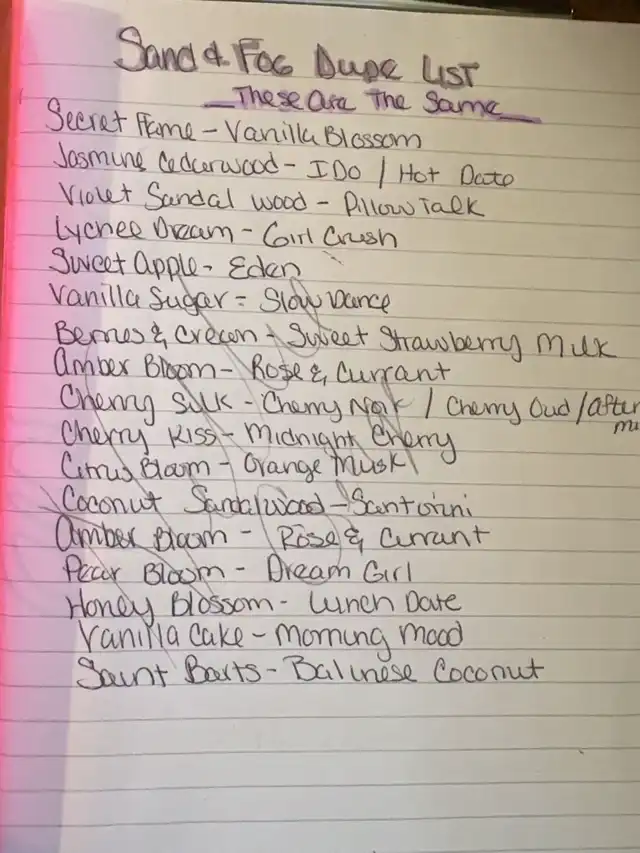 Sand & Fog Dupe List
These Are The Same
Secret Flame - Vanilla Blossom
Jasmine Cedarwood - I Do / Hot Date
Violet Sandal wood - Pillow Talk
Lychee Dream - Girl Crush
Sweet Apple - Eden
Vanilla Sugar = Slow Dance
Berries & Cream - Sweet Strawberry Milk
Amber Bloom - Rose & Currant
Cherry Silk - Cherry Noir / Cherry Oud / After
Cherry Kiss - Midnight Cherry
Citrus Bloom - Orange Musk
Coconut Sandalwood - Santorini
Amber Bloom - Rose & Currant
Pear Bloom - Dream Girl
Honey Blossom - Lunch Date
Vanilla Cake - Morning Mood
Saint Barts - Balinese Coconut